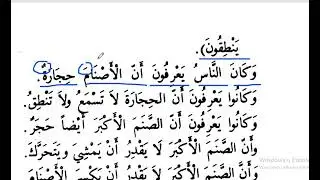 يَنْطِقُونَ).
وَكَانَ النَّاسُ يَعْرِفُونَ أَنَّ الْأَصْنَامَ حِجَارَةٌ.
وَكَانُوا يَعْرِفُونَ أَنَّ الحِجَارَةَ لَا تَسْمَعُ وَلَا تَنْطِقُ.
وَكَانُوا يَعْرِفُونَ أَنَّ الصَّنَمَ الْأَكْبَرَ أَيْضاً حَجَرٌ.
وَأَنَّ الصَّنَمَ الْأَكْبَرَ لَا يَقْدِرُ أَنْ يَمْشِيَ وَيَتَحَرَّكَ.
وَأَنَّ الصَّنَمَ الْأَكْبَرَ لَا يَقْدِرُ أَنْ يَكْسِرَ الْأَصْنَامَ